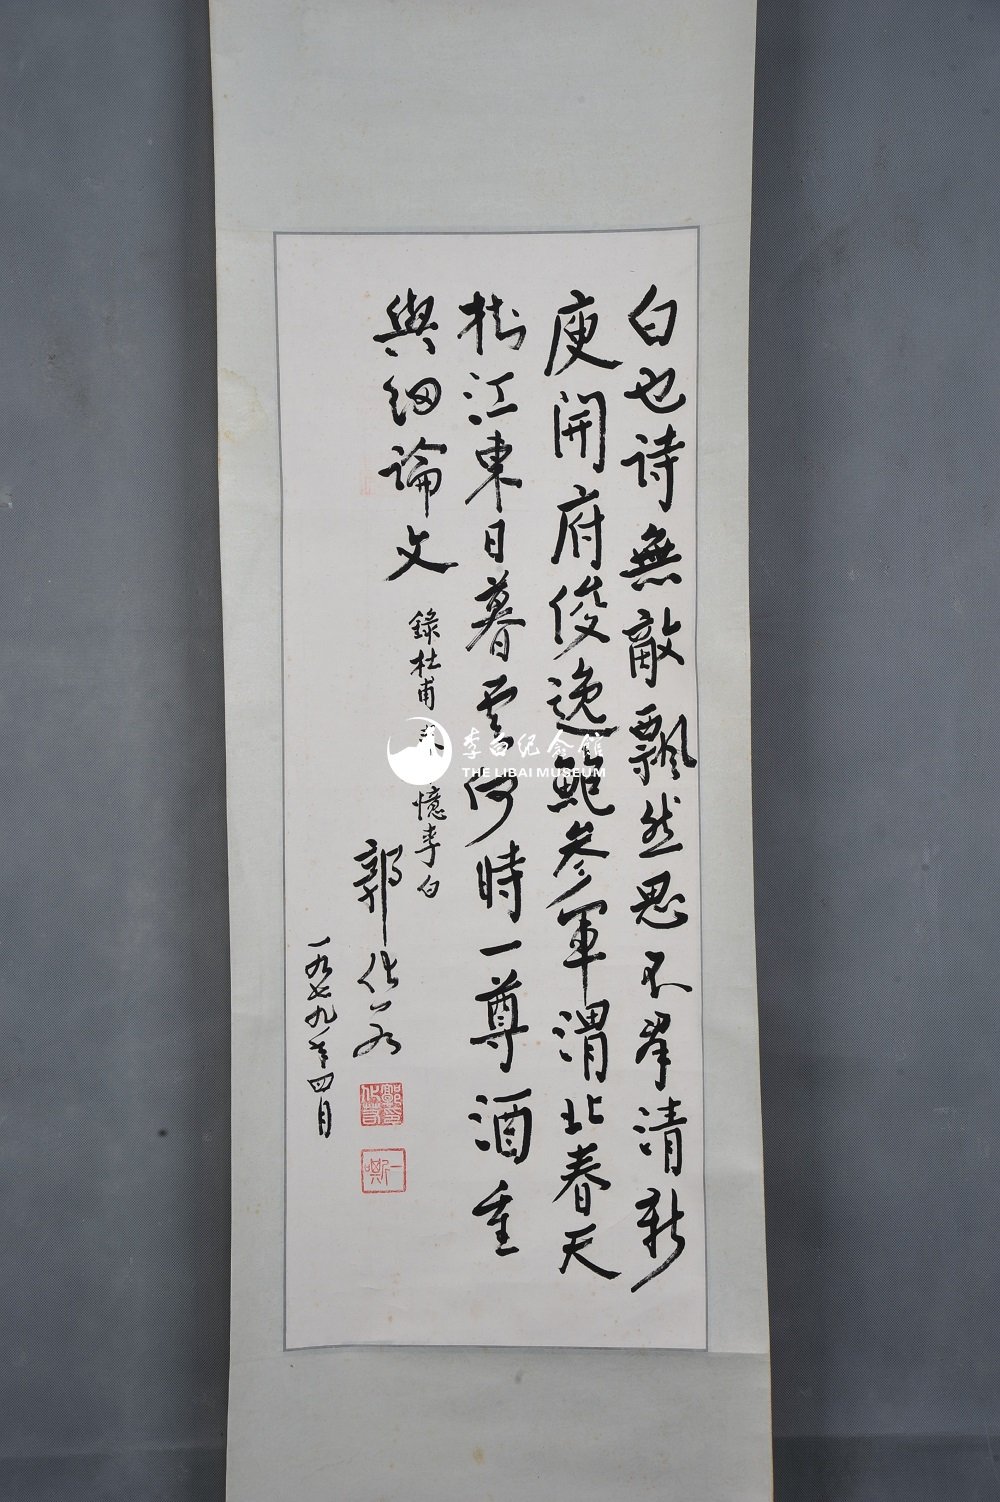 白也詩無敵飄然思不羣清新
庾開府俊逸鮑參軍渭北春天
樹江東日暮雲何時一尊酒重
與細論文
錄杜甫憶李白
郭化若
一九七九年四月
李白纪念馆
THE LIBAI MUSEUM